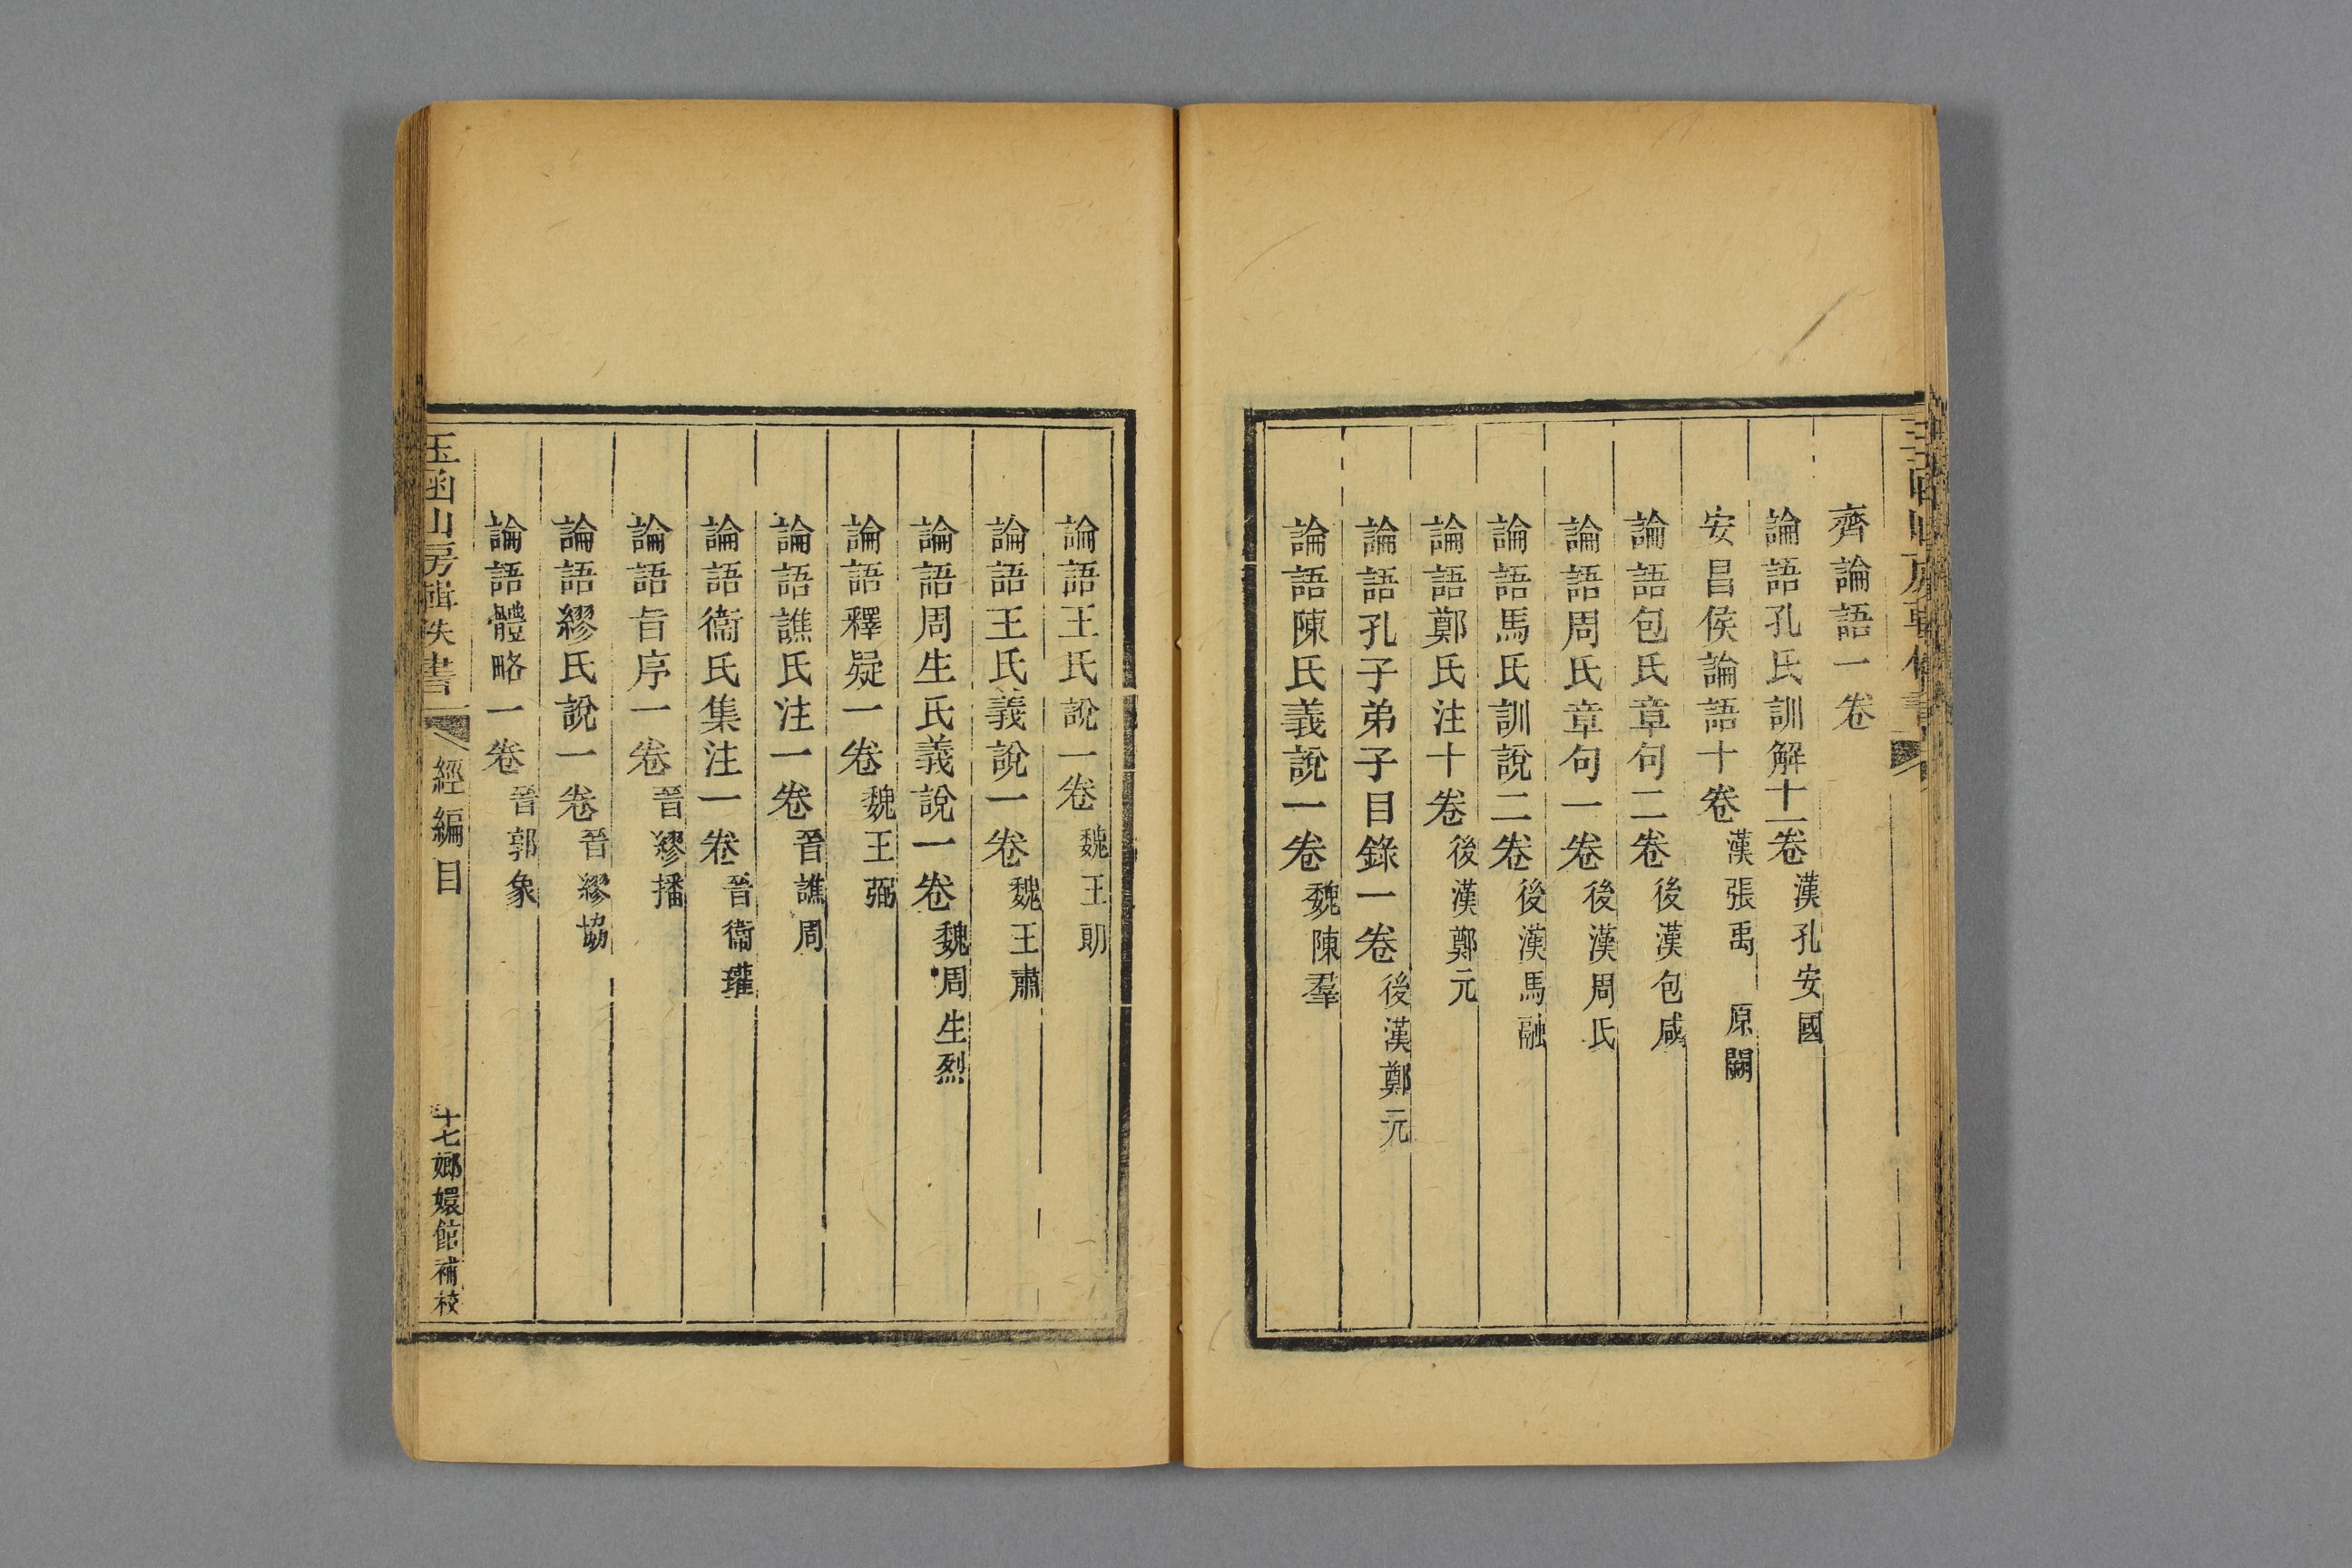 齊論語一卷
論語孔氏訓解十一卷漢孔安國
安昌侯論語十卷漢張禹　原闕
論語包氏章句二卷後漢包咸
論語周氏章句一卷後漢周氏
論語馬氏訓說二卷後漢馬融
論語鄭氏注十卷後漢鄭元
論語孔子弟子目錄一卷後漢鄭元
論語陳氏義說一卷魏陳羣
論語王氏說一卷魏王朗
論語王氏義說一卷魏王肅
論語周生氏義說一卷魏周生烈
論語釋疑一卷魏王弼
論語譙氏注一卷晉譙周
論語衞氏集注一卷晉衞瓘
論語旨序一卷晉繆播
論語繆氏說一卷晉繆協
論語體略一卷晉郭象
玉函山房輯佚書　經編目　十七嫏嬛館補校